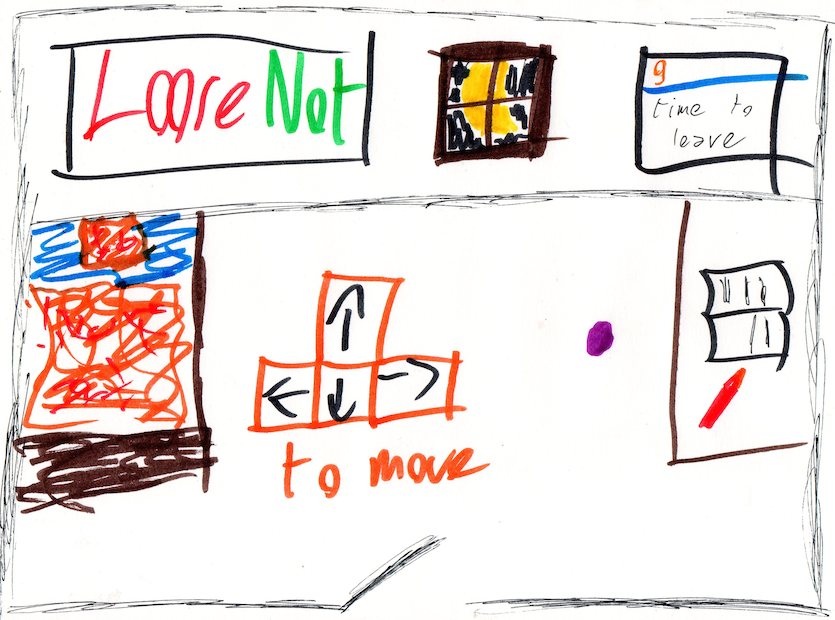 Loose Not
9
time to
leave
to move